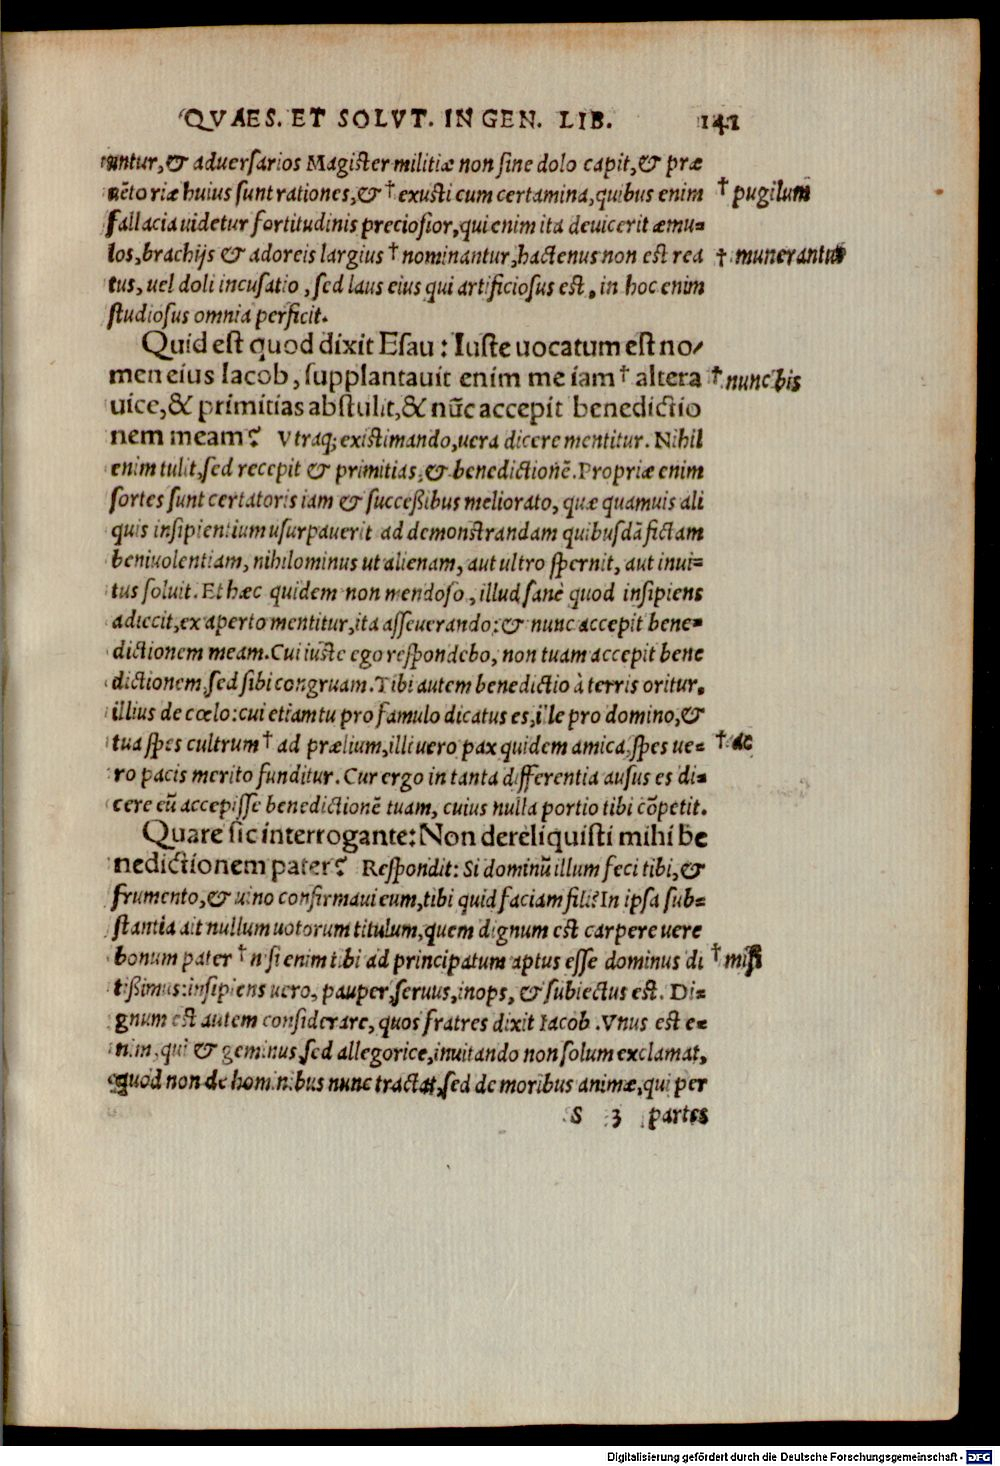 QVAES. ET SOLVT. IN GEN. LIB. 141
untur, & adversarios Magister militiæ non sine dolo capit, & præ
nētoriæ huius sunt rationes, & † exusti cum certamina, quibus enim † pugilum
fallacia uidetur fortitudinis preciosior, qui enim ita deuicerit æmu-
los, brachijs & adoreis largius † nominantur, hactenus non est rea † munerantur
tus, uel doli incusatio, sed laus eius qui artificiosus est, in hoc enim
studiosus omnia perficit.
Quid est quod dixit Esau: Iuste uocatum est no/
men eius Iacob, supplantauit enim me iam † altera † nunc bis
uice, & primitias abstulit, & nūc accepit benedictio
nem meam? Vtraq; existimando, uera dicere mentitur. Nihil
enim tulit, sed recepit & primitias, & benedictionē. Propriæ enim
sortes sunt certatoris iam & successibus meliorato, quæ quamuis ali
quis insipientium usurpauerit ad demonstrandam quibusdā fictam
beniuolentiam, nihilominus ut alienam, aut ultro spernit, aut inui-
tus soluit. Et hæc quidem non mendoso, illud sanè quod insipiens
adiecit, ex aperto mentitur, ita asseuerando: & nunc accepit bene-
dictionem meam. Cui iuste ego respondebo, non tuam accepit bene
dictionem, sed sibi congruam. Tibi autem benedictio à terris oritur,
illius de cœlo: cui etiam tu pro famulo dicatus es, ille pro domino, &
tua spes cultrum † ad prælium, illi uero pax quidem amica, spes ue- † ac
ro pacis merito funditur. Cur ergo in tanta differentia ausus es di-
cere eū accepisse benedictionē tuam, cuius nulla portio tibi cōpetit.
Quare sic interrogante: Non dereliquisti mihi be
nedictionem pater? Respondit: Si dominū illum feci tibi, &
frumento, & uino confirmaui eum, tibi quid faciam fili? In ipsa sub-
stantia ait nullum uotorum titulum, quem dignum est carpere uere
bonum pater † nisi enim tibi ad principatum aptus esse dominus di † misi
tissimus: insipiens uero, pauper, seruus, inops, & subiectus est. Di-
gnum est autem considerare, quos fratres dixit Iacob. Vnus est e-
nim, qui & geminus, sed allegorice, inuitando non solum exclamat,
quod non de hominibus nunc tractat, sed de moribus animæ, qui per
S 3 partes
Digitalisierung gefördert durch die Deutsche Forschungsgemeinschaft - DFG